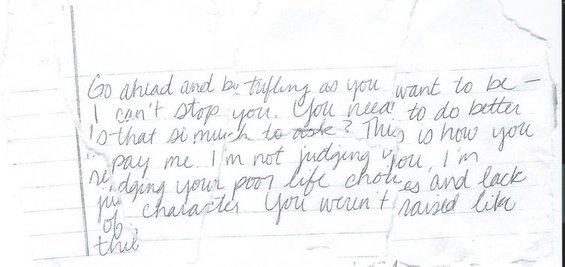 Go ahead and be trifling as you want to be –
I can't stop you. You need to do better
is that so much to ask? This is how you
repay me. I'm not judging you, I'm
judging your poor life choices and lack
of character. You weren't raised like
this